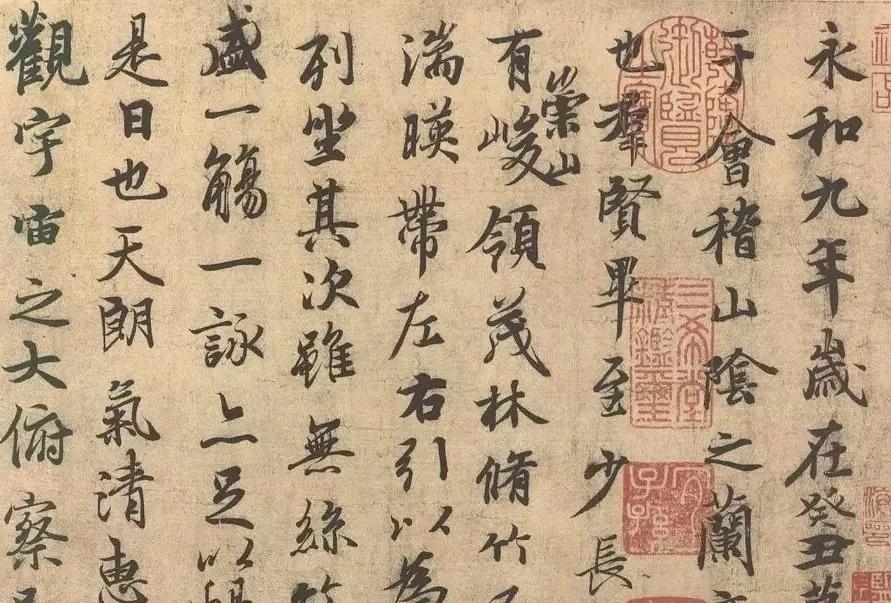 永和九年歲在癸丑
于會稽山陰之蘭
也羣賢畢至少長
有崇山峻領茂林脩竹
湍暎帶左右引以為
列坐其次雖無絲竹
盛一觴一詠亦足以暢
是日也天朗氣清惠
觀宇宙之大俯察
乾隆御覽之寶
三希堂精鑑璽
宜子孫